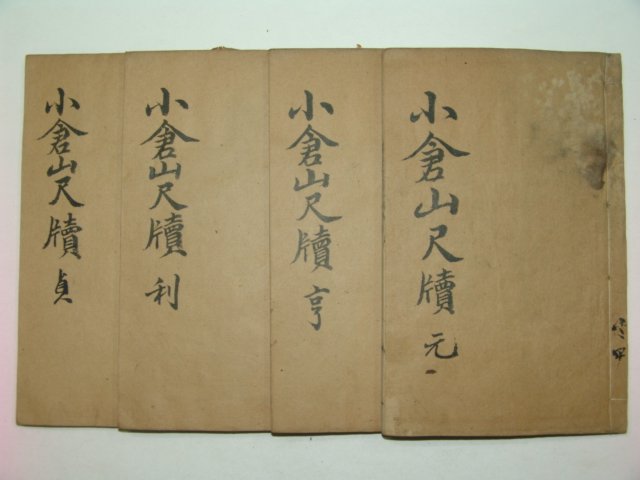 小倉山尺牘 元
小倉山尺牘 亨
小倉山尺牘 利
小倉山尺牘 貞